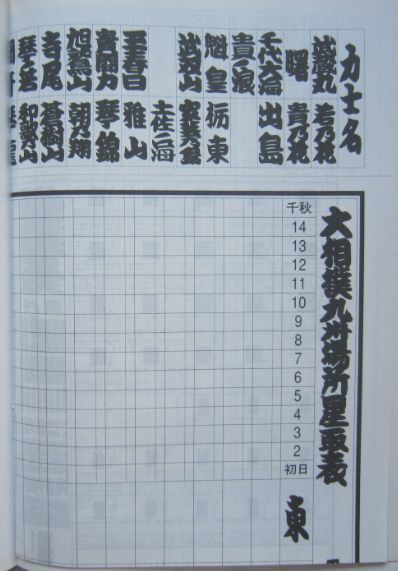 力士名
武蔵丸 若乃花
曙 貴乃花
千代大海 出島
貴ノ浪
魁皇 栃東
武双山 安美錦
土佐ノ海
玉春日 雅山
貴闘力 琴錦
旭鷲山 朝乃翔
寺尾 蒼樹山
琴 和歌乃山
大相撲九州場所星取表
千秋
14
13
12
11
10
9
8
7
6
5
4
3
2
初日
東